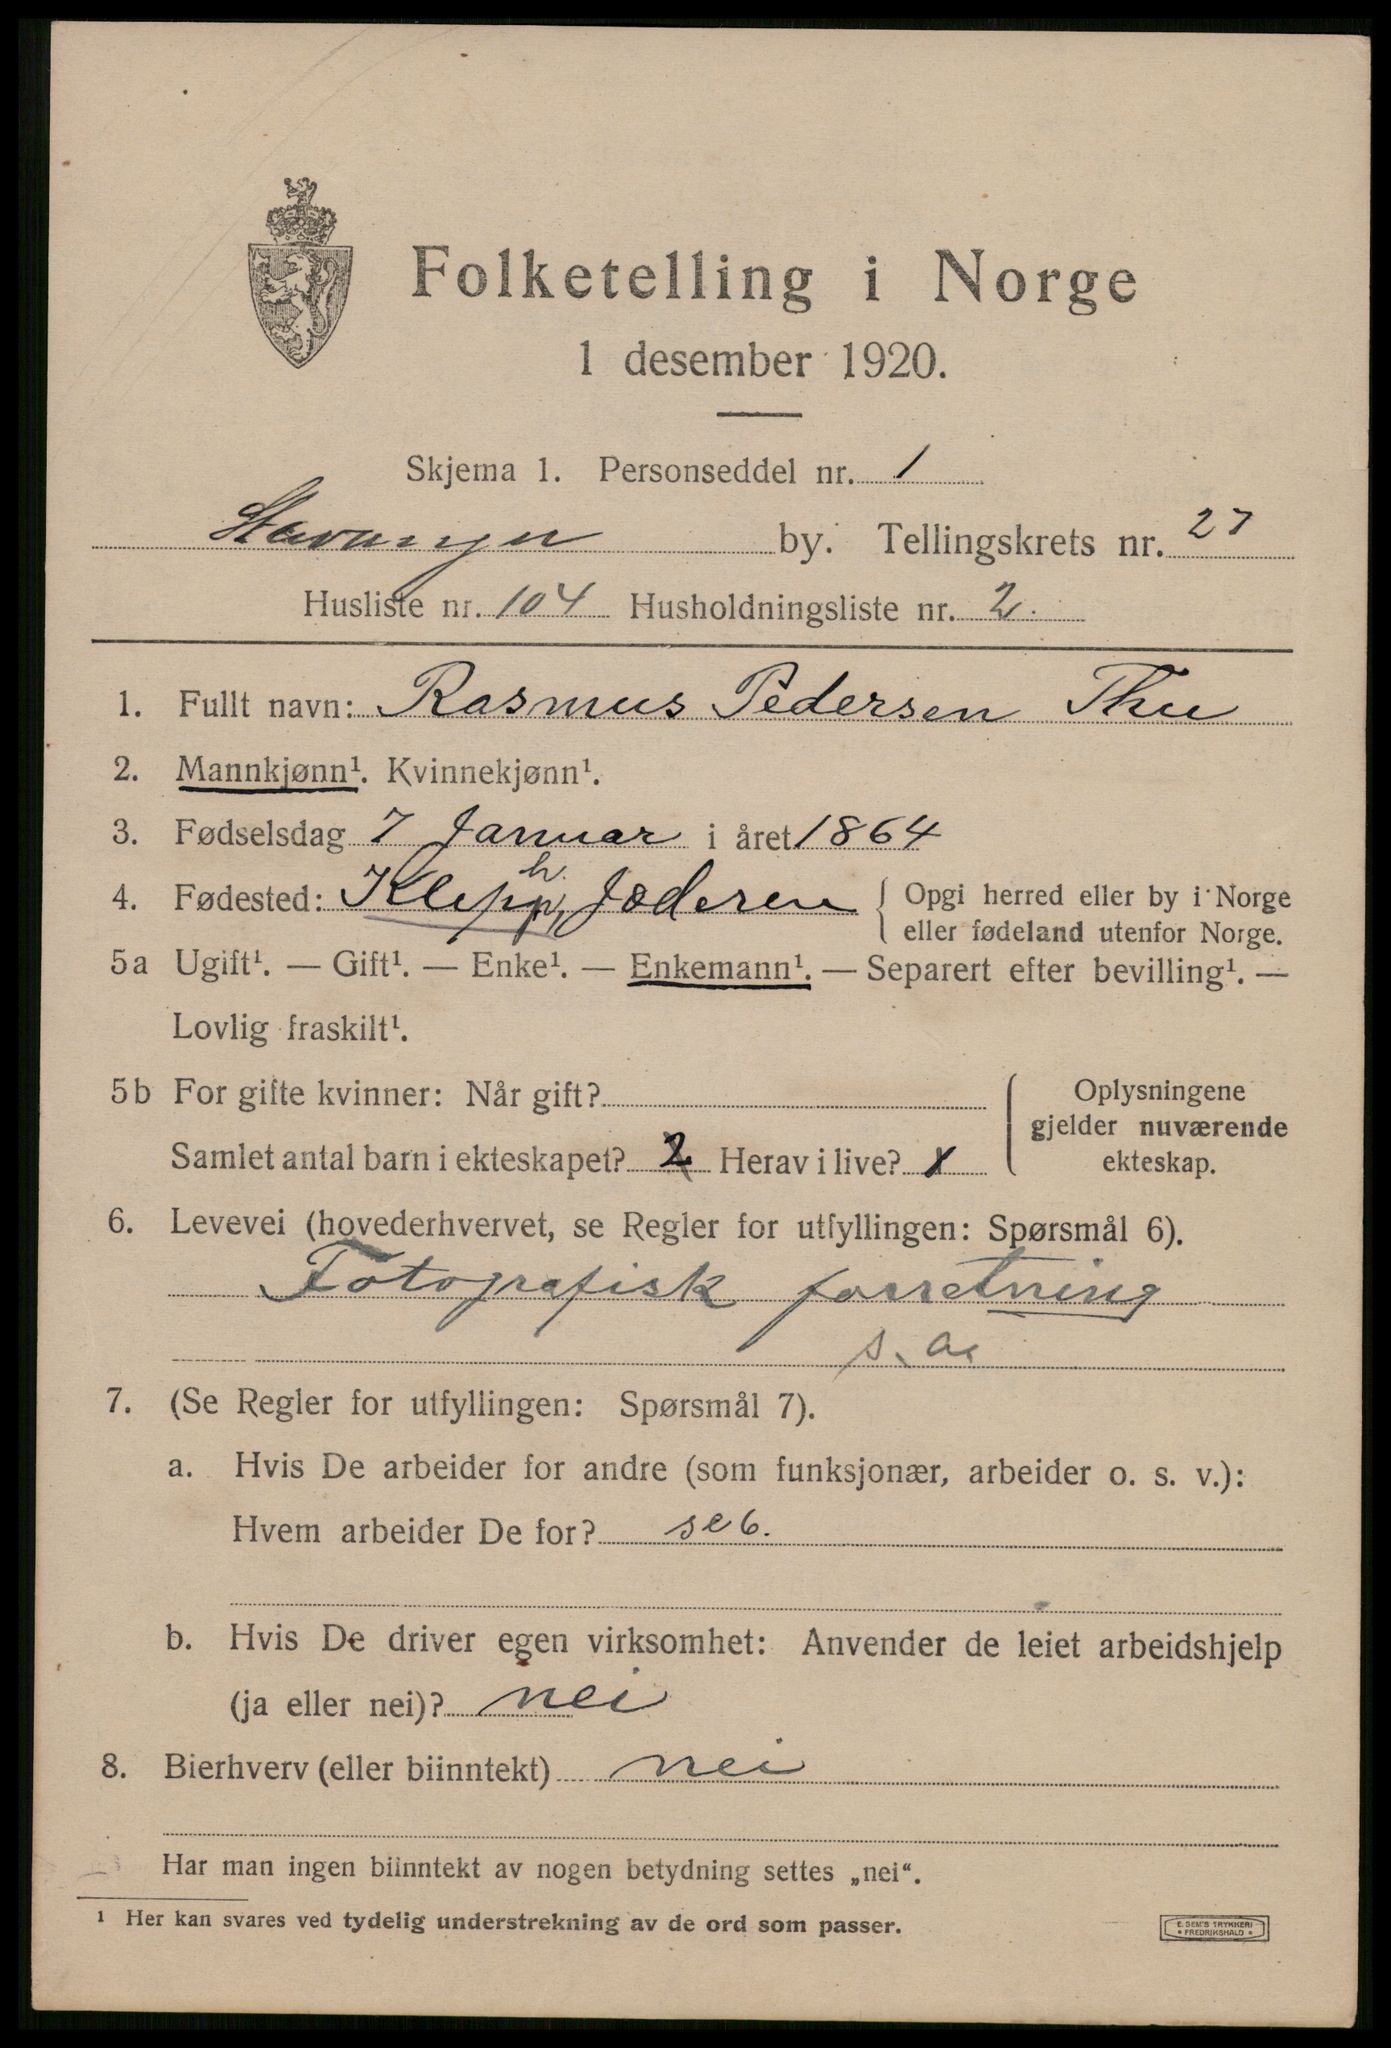 Folketelling i Norge
1 desember 1920.
Skjema 1. Personseddel nr. 1
Stavanger by. Tellingskrets nr. 27
Husliste nr. 104 Husholdningsliste nr. 2.
1. Fullt navn: Rasmus Pedersen Thu
2. Mannkjønn¹. Kvinnekjønn¹.
3. Fødselsdag 7 Januar i året 1864
h
4. Fødested: Klepp, Jæderen { Opgi herred eller by i Norge
eller fødeland utenfor Norge.
5a Ugift¹. — Gift¹. — Enke¹. — Enkemann¹. — Separert efter bevilling¹. —
Lovlig fraskilt¹.
5b For gifte kvinner: Når gift?
Samlet antal barn i ekteskapet? 2 Herav i live?
Oplysningene
gjelder nuværende
ekteskap.
6. Levevei (hovederhvervet, se Regler for utfyllingen: Spørsmål 6).
Fotografisk forretning
s. a.
7. (Se Regler for utfyllingen: Spørsmål 7).
a. Hvis De arbeider for andre (som funksjonær, arbeider o. s. v.):
Hvem arbeider De for? se 6.
b. Hvis De driver egen virksomhet: Anvender de leiet arbeidshjelp
(ja eller nei)? nei
8. Bierhverv (eller biinntekt) nei
Har man ingen biinntekt av nogen betydning settes „nei“.
¹ Her kan svares ved tydelig understrekning av de ord som passer.
E. SEM'S TRYKKERI
* FREDRIKSHALD *